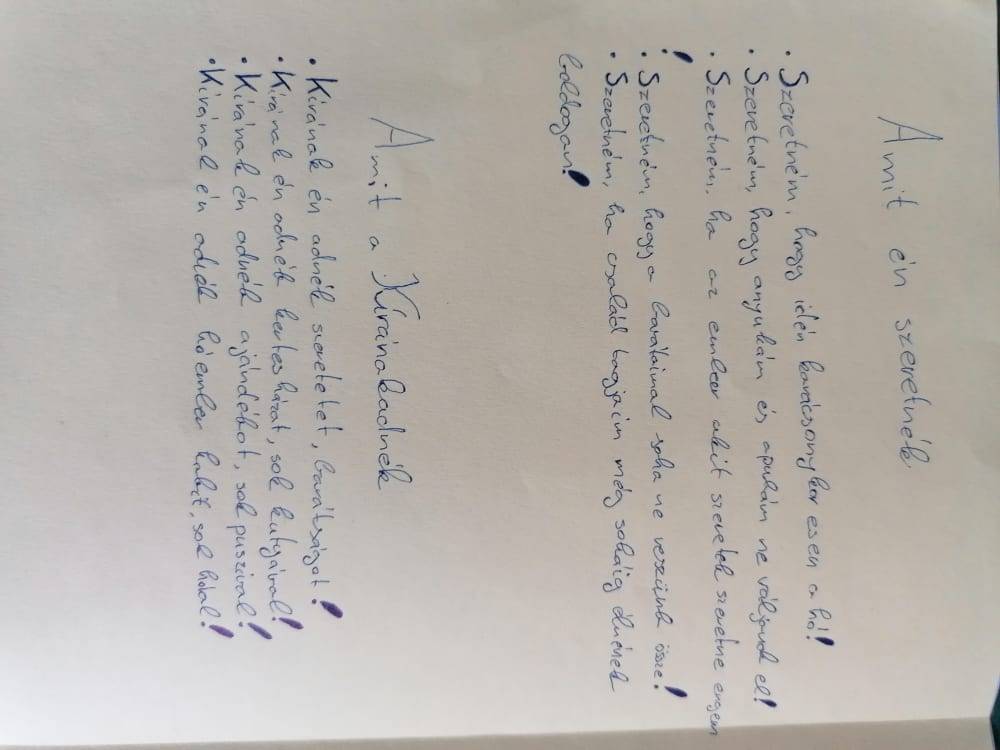 Amit én szeretnék
• Szeretném, hogy idén karácsonykor esen a hó!
• Szeretném, hogy anyukám és apukám ne váljanak el!
• Szeretném, ha az ember akit szeretek szeretne engem
!
• Szeretném, hogy a barátaimal soha ne veszünk össze!
• Szeretném, ha család tagjaim még sokáig élnének
boldogan!
Amit a Kíránakadnék
• Kírának én adnék szeretetet, barátságot!
• Kírának én adnék kertes házat, sok kutyával!
• Kírának én adnék ajándékot, sok puszival!
• Kíránal én adék hóember kabit, sok hóal!